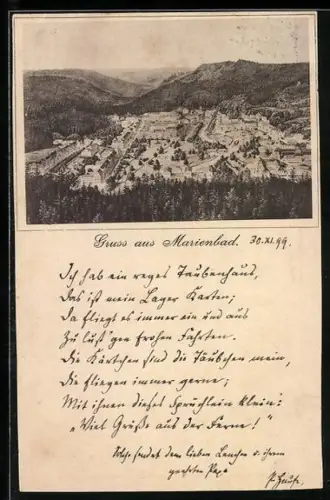 Gruss aus Marienbad. 30.XI.99.
Ich hab ein reges Taubenhaus,
Das ist mein Lager Karten;
Da fliegt es immer ein und aus
Zu lust'gen frohen Fahrten.
Die Kärtchen sind die Täubchen mein,
Die fliegen immer gerne;
Mit ihnen dieses Sprüchlein klein:
"Viel Grüße aus der Ferne!"
Solche sendet dem lieben Lenchen u. ihrem
geehrten Papa